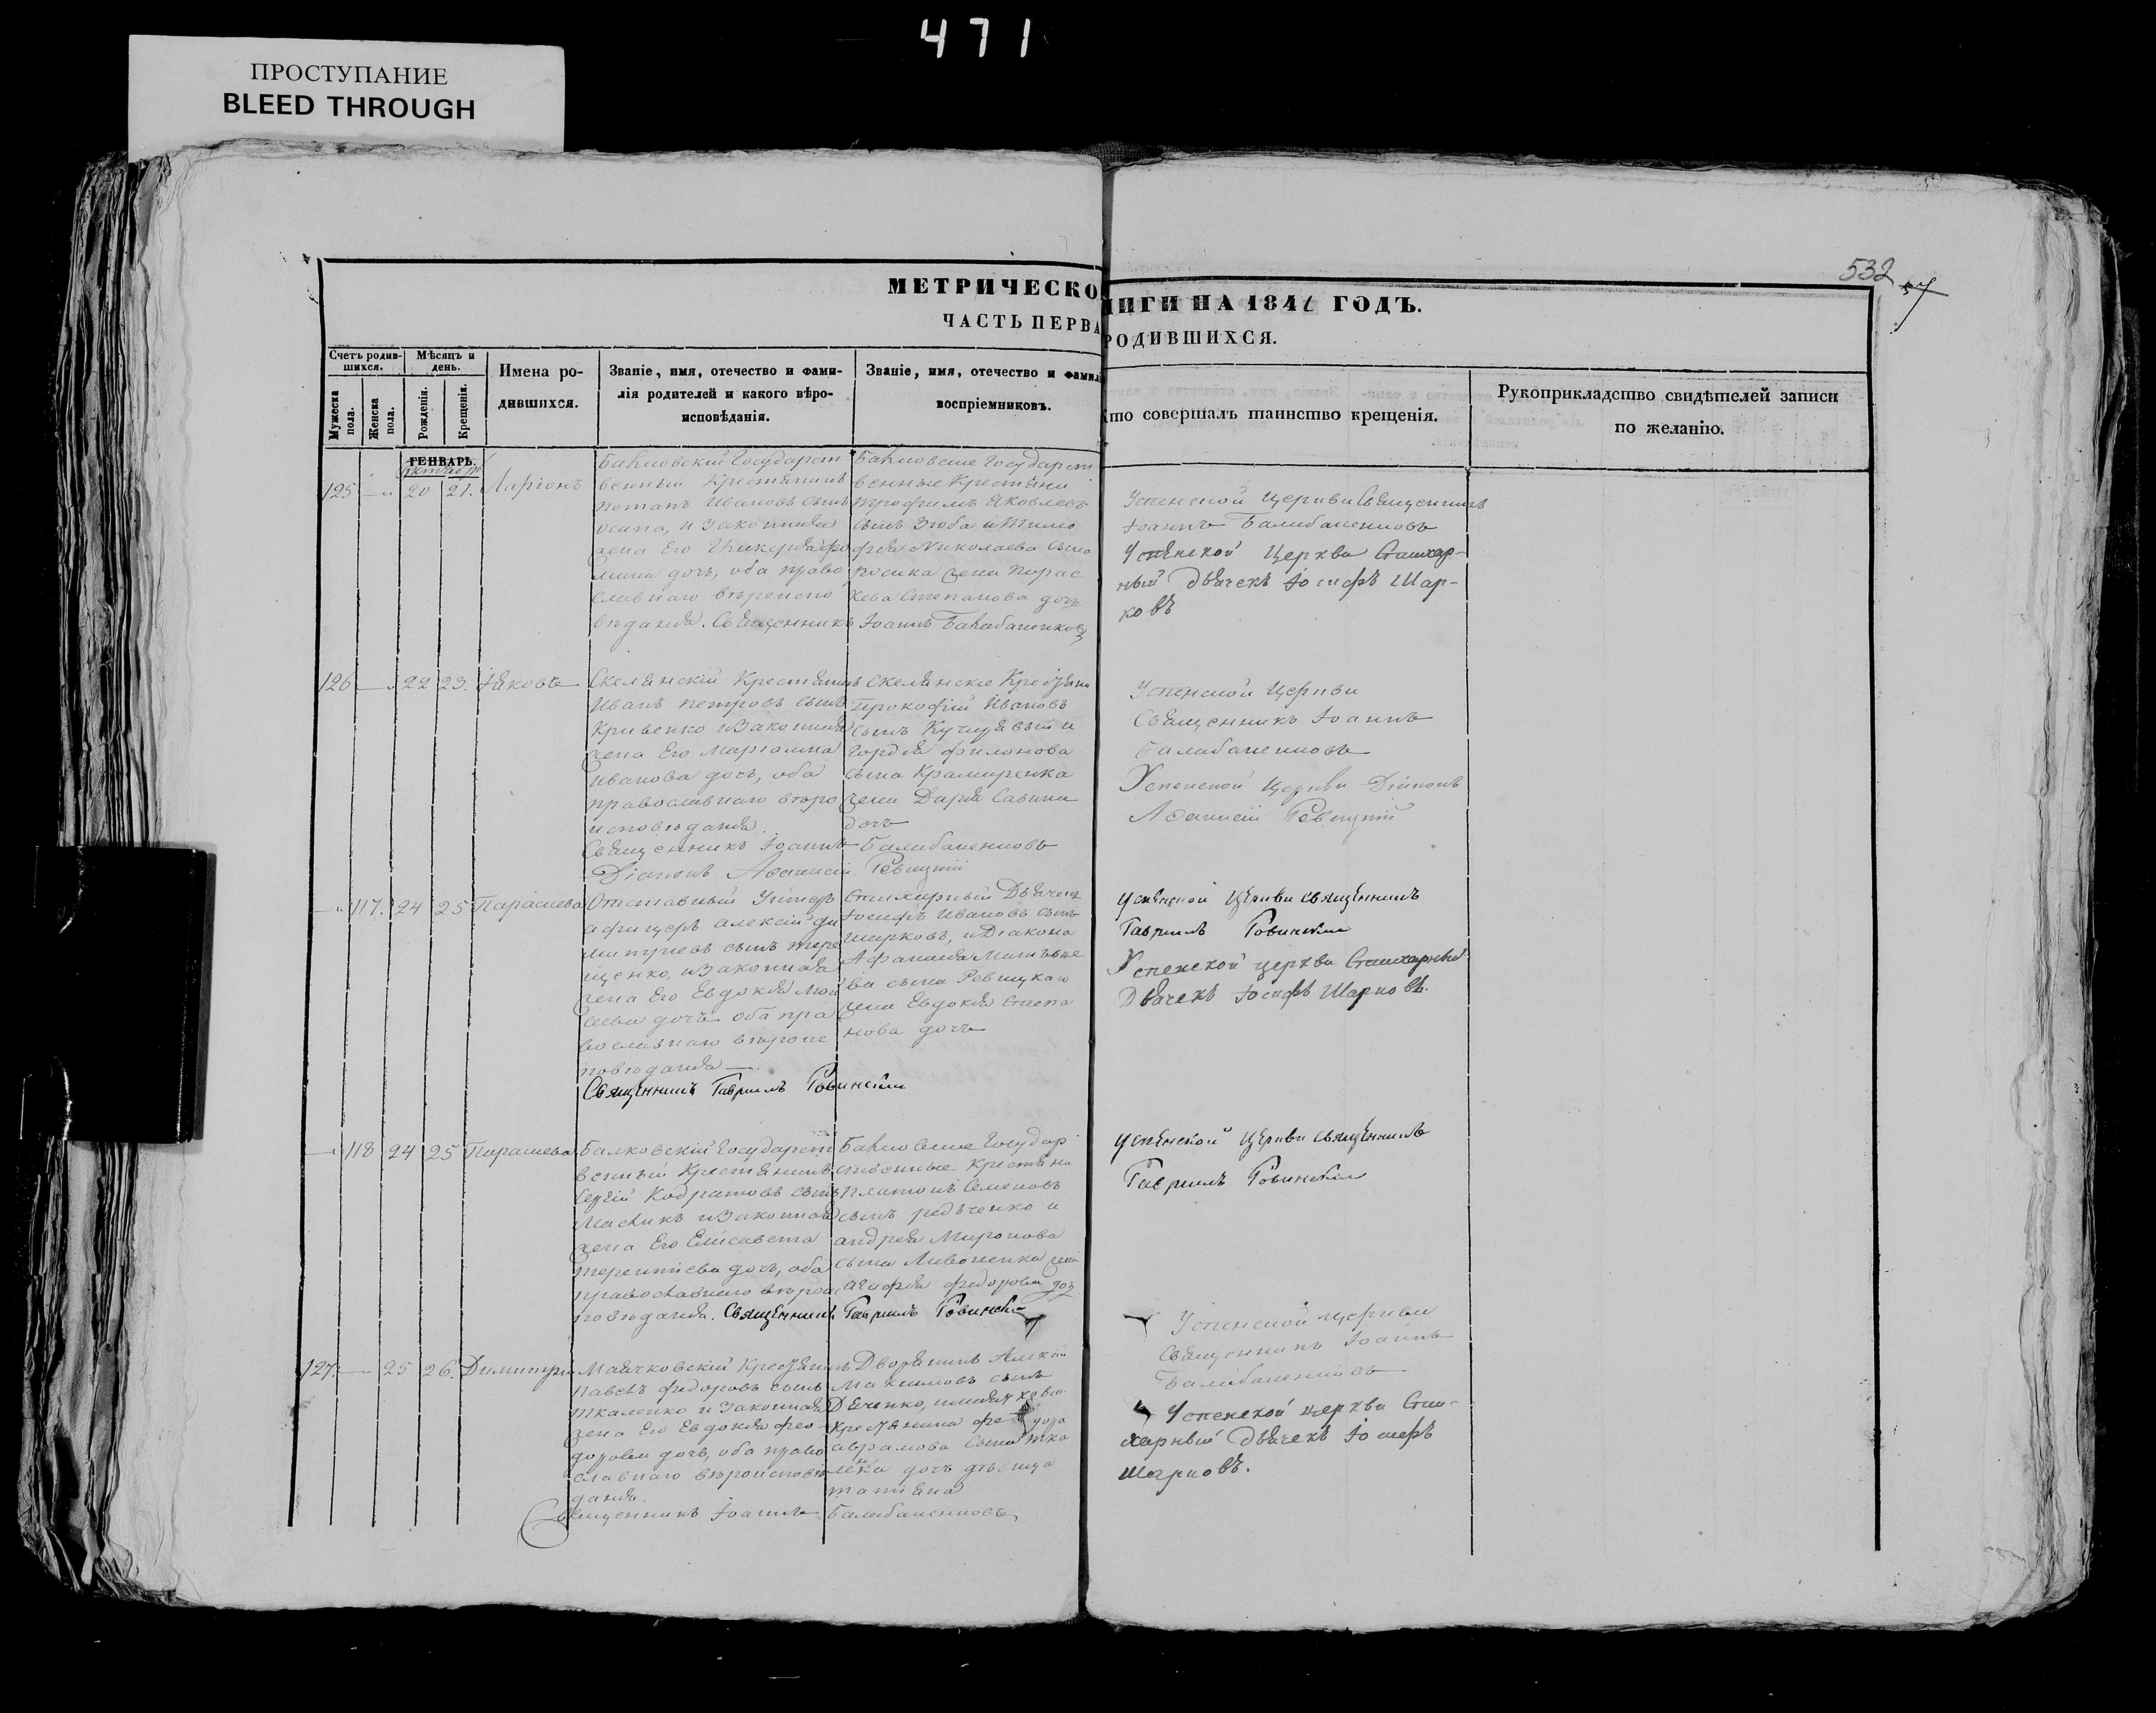 471
ПРОСТУПАНИЕ
BLEED THROUGH
532
57
МЕТРИЧЕСКО ИГИ НА 1841 ГОДЪ.
ЧАСТЬ ПЕРВА РОДИВШИХСЯ.
Счетъ родив-
шихся.
Мужеска пола.
Женска пола.
Мѣсяцъ и
день.
Рожденія.
Крещенія.
Имена ро-
дившихся.
Званіе, имя, отечество и фами-
лія родителей и какого вѣро-
исповѣданія.
Званіе, имя, отечество и фамил
воспріемниковъ.
то совершалъ таинство крещенія.
Рукоприкладство свидѣтелей записи
по желанію.
ГЕНВАРЬ.
125 20 21. Ларіонъ
Балковскій Государст
венный Крестянинъ
Потапъ Ивановъ сынъ
Осипа, и Законная
жена Его Гликерія Фо
мина дочь, оба право
славнаго вѣроиспо
вѣданія. Священникъ Іоаннъ Балабаненковъ
Балковские Государст
венные Крестяни
Трофимъ Яковлевъ
сынъ Зюба и Тимо
фея Николаева сына
жена Парас
кева Степанова дочь
Успенской Церкви Священникъ
Іоаннъ Балабаненковъ
Успенской Церкви Стихар-
ный Дьячекъ Іосифъ Шар-
ковъ
126 22 23. Іаковъ
Скелянскій Крестянинъ
Иванъ Петровъ сынъ
Кривенко и Законная
жена Его Маріамна
Иванова дочь, оба
православнаго вѣро
исповѣданія.
Священникъ Іоаннъ Балабаненковъ
Діаконъ Афанасій Ревицкій
Скелянские Крестяни
Прокофій Ивановъ
сынъ и
Гордія Филонова
сына Крамаренка
жена Дарія Савина
дочь
Успенской Церкви
Священникъ Іоаннъ
Балабаненковъ
Успенской Церкви Діаконъ
Афанасій Ревицкій
117. 24 25 Параскева
Отставный Унтеръ
афицеръ Алексій Ди
митріевъ сынъ Тере
щенко, и Законная
жена Его Евдокія Мои
сеева дочь оба пра
вославнаго вѣроис
повѣданія
Священникъ Гавриилъ Ровинскій
Стихарный Дьячекъ
Іосифъ Ивановъ сынъ
Шарковъ, и Діакона
Афанасія Матвѣе
ва сына Ревицкаго
жена Евдокія Степа
нова дочь
Успенской Церкви священникъ
Гавриилъ Ровинскій
Успенской церкви Стихарный
Дьячекъ Іосифъ Шарковъ.
118 24 25 Параскева
Балковскій Государст
венный Крестянинъ
Сергій Кодратовъ сынъ
Масликъ и Законная
жена Его Елисавета
Терентіева дочь, оба
православнаго вѣроис
повѣданія. Священникъ Гавриилъ Ровинскій
Балковские Государ
ственные Крестяни
Платонъ Семеновъ
сынъ Редьченко и
Андрея Миронова
сына жена
Агафія Федорова дочь
Успенской Церкви священникъ
Гавриилъ Ровинскій
127. 25 26. Димитрій
Маячковскій Крестянинъ
Павелъ Федоровъ сынъ
Ткаленко и Законная
жена Его Евдокія Фео
дорова дочь, оба право
славнаго вѣроисповѣ
данія.
Священникъ Іоаннъ Балабаненковъ
Дворянинъ Алексій
Максимовъ сынъ
Дяченко,
Крестянина Федора
Аврамова сына Тка
лека дочь дѣвица
Татіана
Успенской Церкви
Священникъ Іоаннъ
Балабаненковъ
Успенской церкви Сти-
харный Дьячекъ Іосифъ
Шарковъ.